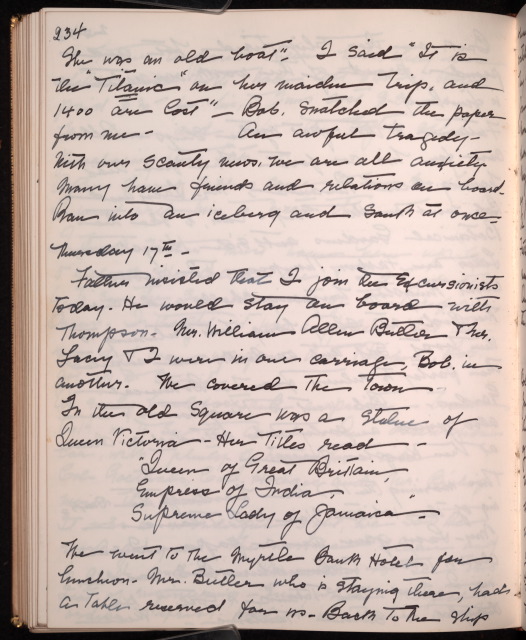 234
She was an old boat". I said "It is
the "Titanic" on her maiden trip, and
1400 are lost" - Bob. snatched the paper
from me - An awful tragedy -
With our scanty news, we are all anxiety
Many have friends and relations on board
Ran into an iceberg and sank at once -
Thursday 17th -
Father insisted that I join the Excursionists
today. He would stay on board with
Thompson. Mr. William Allen Butler & Mr.
Lacy & I were in one carriage, Bob. in
another. We covered the Town
In the old Square was a statue of
Queen Victoria - Her Titles read -
"Queen of Great Britain,
Empress of India,
Supreme Lady of Jamaica" -
We went to the Myrtle Bank Hotel for
luncheon. Mr. Butler who is staying there, had
a table reserved for us - Back to the ship